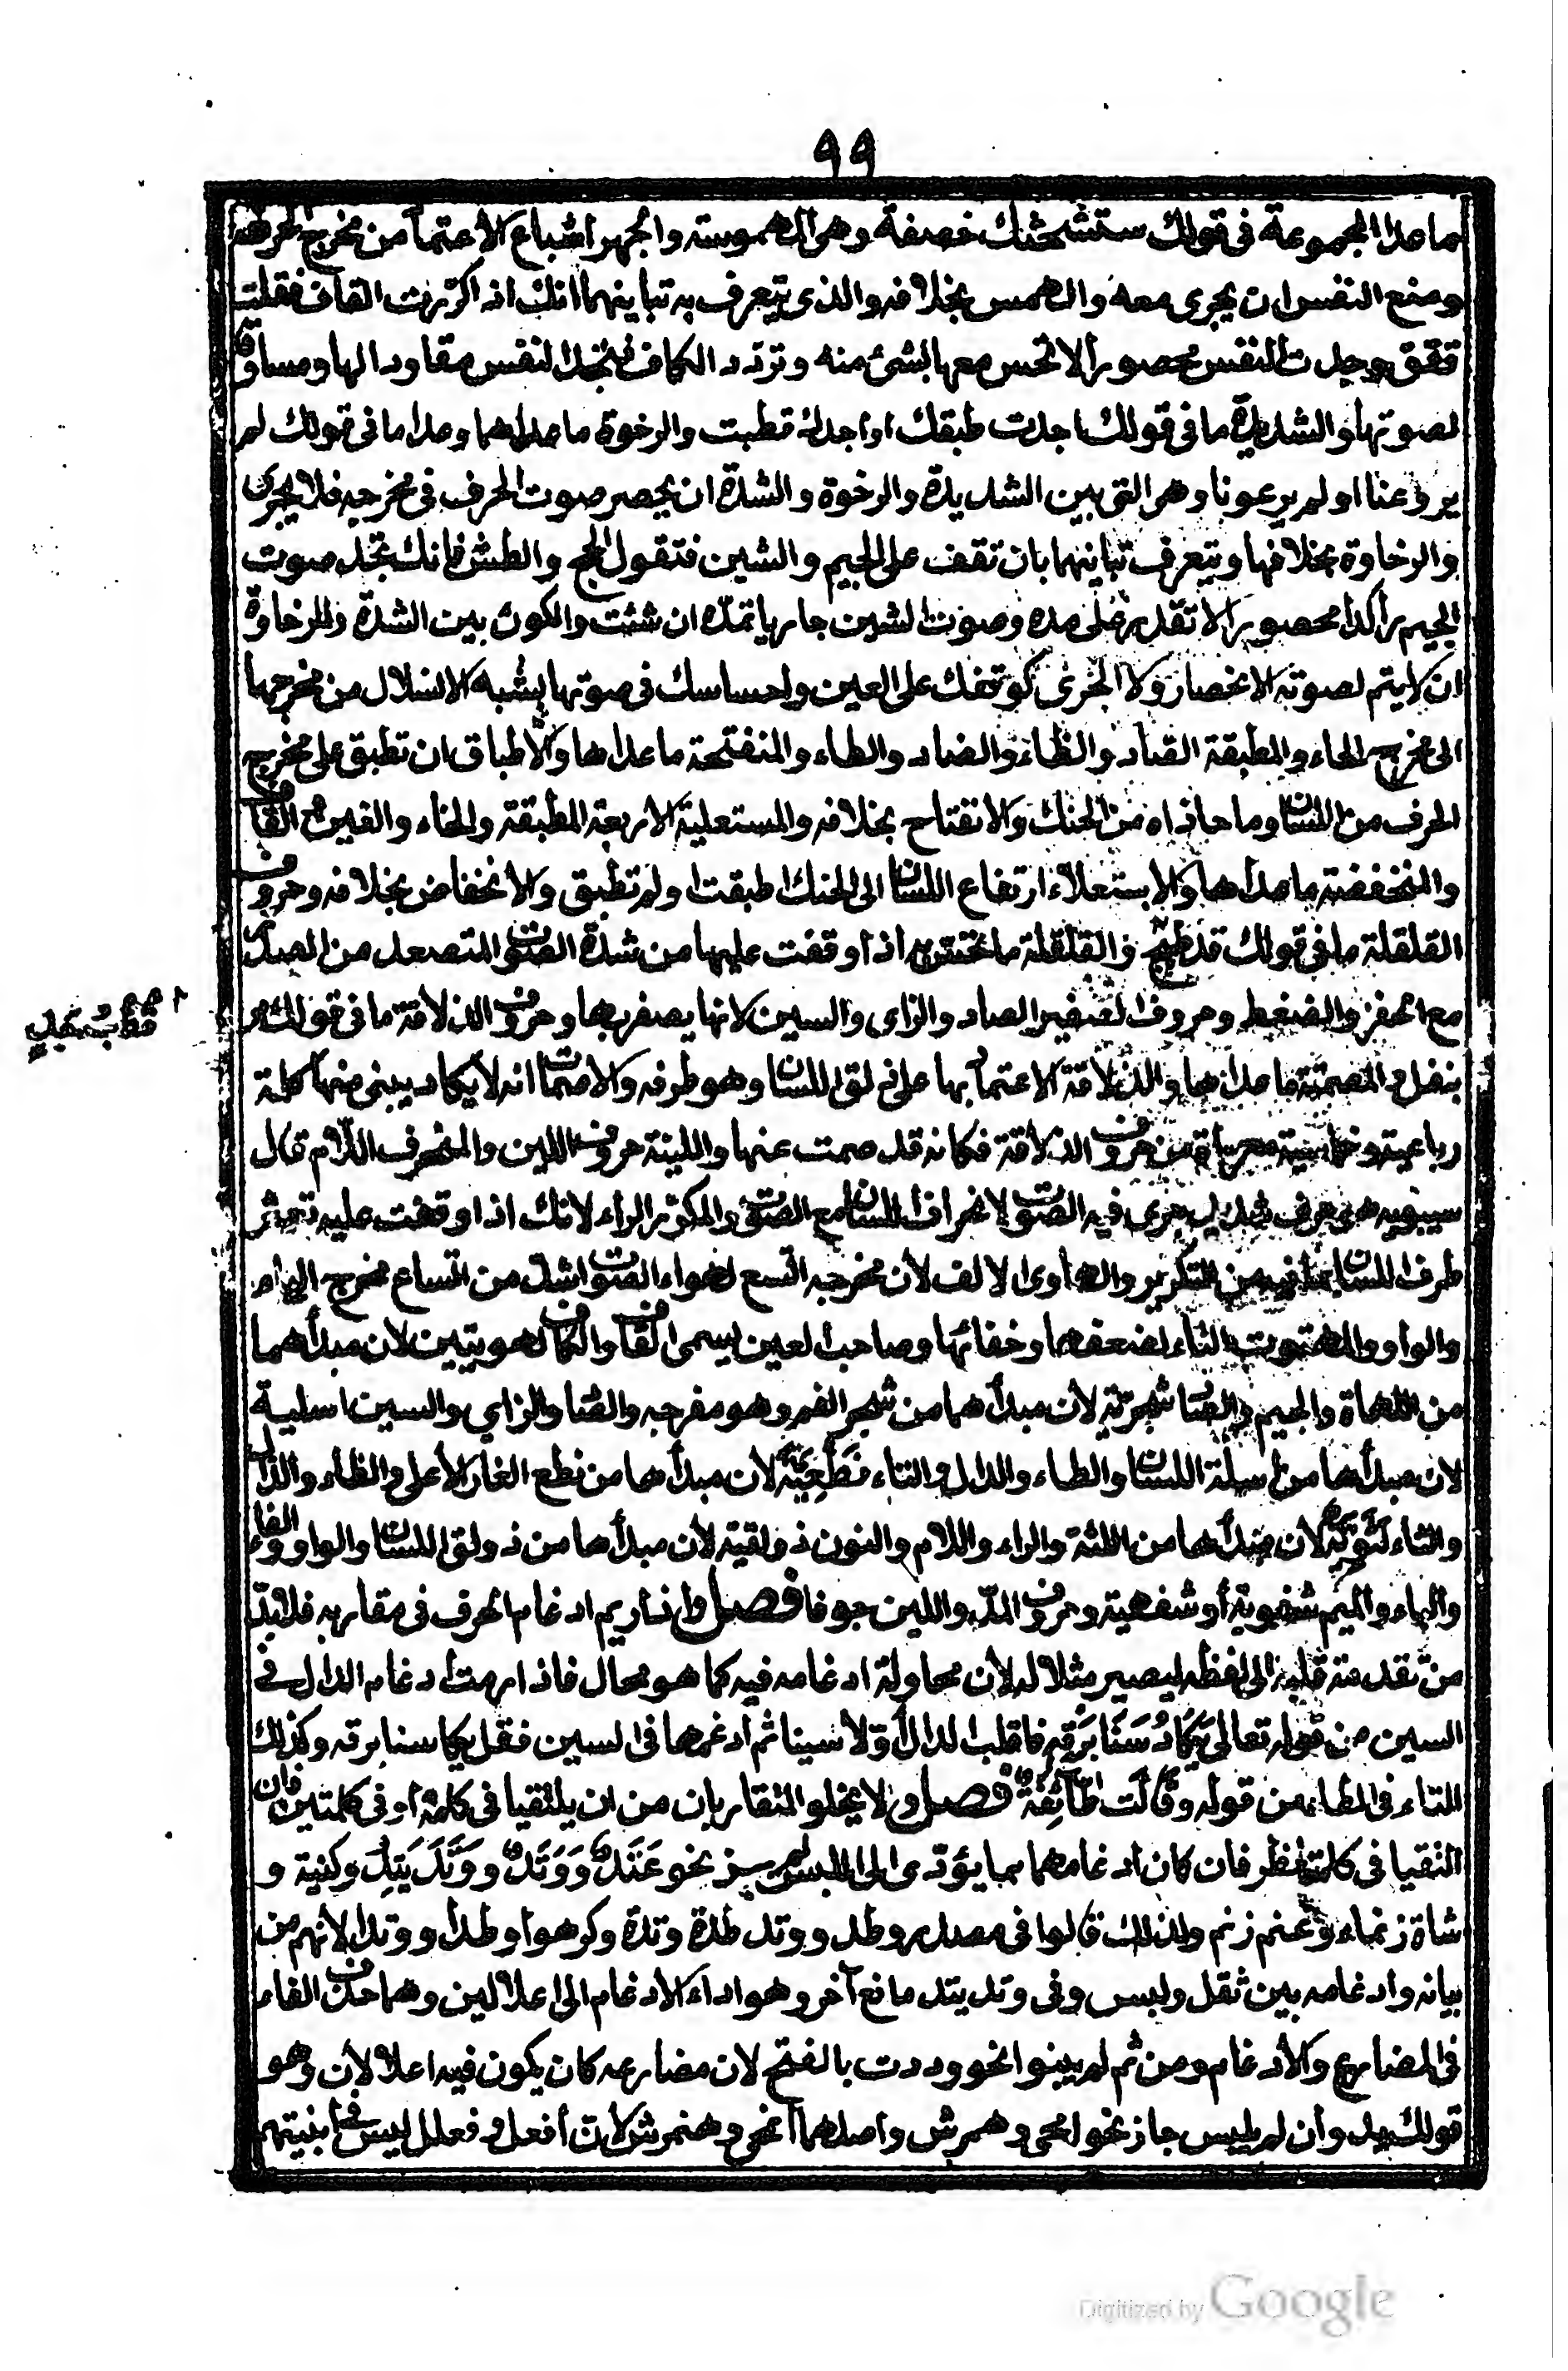 ٩٩
ما عدا المجموعة في قولك ستشحثك خصفة وهي المهموسة والجهر اشباع الاعتماد من مخرج الحرف
ومنع النفس ان يجرى معه والهمس بخلافه والذى يتعرف به تباينهما انك اذا كررت القاف فقلت
ققق وجدت النفس محصورا لا تحس معها بشئ منه وتردد الكاف فتجد النفس مقاودا لها ومساوقا
لصوتها والشديدة ما في قولك اجدت طبقك او اجدك قطبت والرخوة ما عداها وعدا ما في قولك لم
يروعنا او لم يرعونا وهي التى بين الشديدة والرخوة والشدة ان يحصر صوت الحرف في مخرجه فلا يجرى
والرخاوة بخلافها ويتعرف تباينهما بان تقف على الجيم والشين فتقول الحج والطش فانك تجد صوت
الجيم راكدا محصورا لا تقدر على مده وصوت الشين جاريا تمده ان شئت والكون بين الشدة والرخاوة
ان لا يتم لصوته الانحصار ولا الجرى كوقفك على العين واحساسك في صوتها بشبه الانسلال من مخرجها
الى مخرج الحاء والمطبقة الصاد والظاء والضاد والطاء والمنفتحة ما عداها والاطباق ان تطبق على مخرج
الحرف من اللسان وما حاذاه من الحنك والانفتاح بخلافه والمستعلية الاربعة المطبقة والخاء والغين والقاف
والمنخفضة ما عداها والاستعلاء ارتفاع اللسان الى الحنك اطبقت او لم تطبق والانخفاض بخلافه وحروف
القلقلة ما في قولك قد طبج والقلقلة ما تحس به اذا وقفت عليها من شدة الصوت المتصعد من الصدر
مع الحفز والضغط وحروف الصفير الصاد والزاى والسين لانها يصفر بها وحروف الذلاقة ما في قولك مر
بنفل والمصمتة ما عداها والذلاقة الاعتماد بها على ذلق اللسان وهو طرفه والاصمات انه لا يكاد يبنى منها كلمة
رباعية وخماسية معراة من حروف الذلاقة فكانه قد صمت عنها واللينة حروف اللين والمنحرف اللام قال
سيبويه هو حرف شديد جرى فيه الصوت لانحراف اللسان مع الصوت والمكرر الراء لانك اذا وقفت عليه تعثر
طرف اللسان بما فيه من التكرير والهاوى الالف لان مخرجه اتسع لهواء الصوت اشد من اتساع مخرج الياء
والواو والمهتوت التاء لضعفها وخفائها وصاحب العين يسمى القاف والكاف لهويتين لان مبدأهما
من اللهاة والجيم والشين والضاد شجرية لان مبدأهما من شجر الفم وهو مفرجه والصاد والزاي والسين اسلية
لان مبدأها من اسلة اللسان والطاء والدال والتاء نطعية لان مبدأها من نطع الغار الاعلى والظاء والذال
والثاء لثوية لان مبدأها من اللثة والراء واللام والنون ذولقية لان مبدأها من ذولق اللسان والواو والفاء
والباء والميم شفوية او شفهية وحروف المد واللين جوفا فصل واذا ريم ادغام الحرف في مقاربه فلا بد
من تقدمة قلبه الى لفظه ليصير مثلا له لان محاولة ادغامه فيه كما هو محال فاذا رمت ادغام الدال في
السين من قوله تعالى يَكَادُ سَنَا بَرْقِهِ فاقلب الدال اولا سينا ثم ادغمها في السين فقل يكاسنا برقه وكذلك
التاء في الطاء من قوله وقالت طائفة فصل ولا يخلو المتقاربان من ان يلتقيا في كلمة او في كلمتين فان
التقيا في كلمة نظر فان كان ادغامهما مما يؤدى الى اللبس لم يجز نحو عَتَدٌ وَوَتَدٌ وَوَتَدَ يَتِدُ وكنية و
شاة زنماء وغنم زنم ولذلك قالوا في مصدر وطد ووتد طدة وتدة وكرهوا وطدا ووتدا لانهم من
بيانه وادغامه بين ثقل ولبس وفي وتد يتد مانع آخر وهو اداء الادغام الى اعلالين وهما حذف الفاء
في المضارع والادغام ومن ثم لم يبنوا نحو وددت بالفتح لان مضارعه كان يكون فيه اعلالان وهو
قولك يد وان لم يلبس جاز نحو امحى وهمرش واصلهما انمحى وهنمرش لان افعل وفعلل ليس في ابنيتهم
Digitized by Google